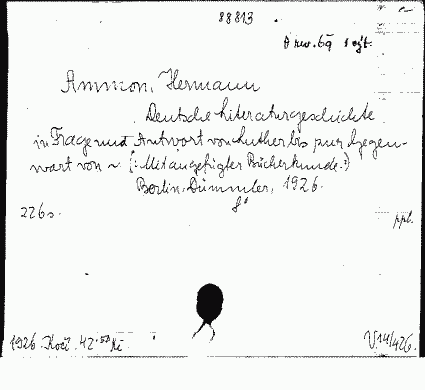 88813
A rev. 69 1 egt.
Ammon, Hermann
Deutsche Literaturgeschichte
in Frage und Antwort von Luther bis zur Gegen-
wart von ~ (: Mit angefügter Bücherkunde.:)
Berlin, Dümmler, 1926.
8°
226 s.
ppl.
1926. Kočí. 42.50 Kč
V.14/426.